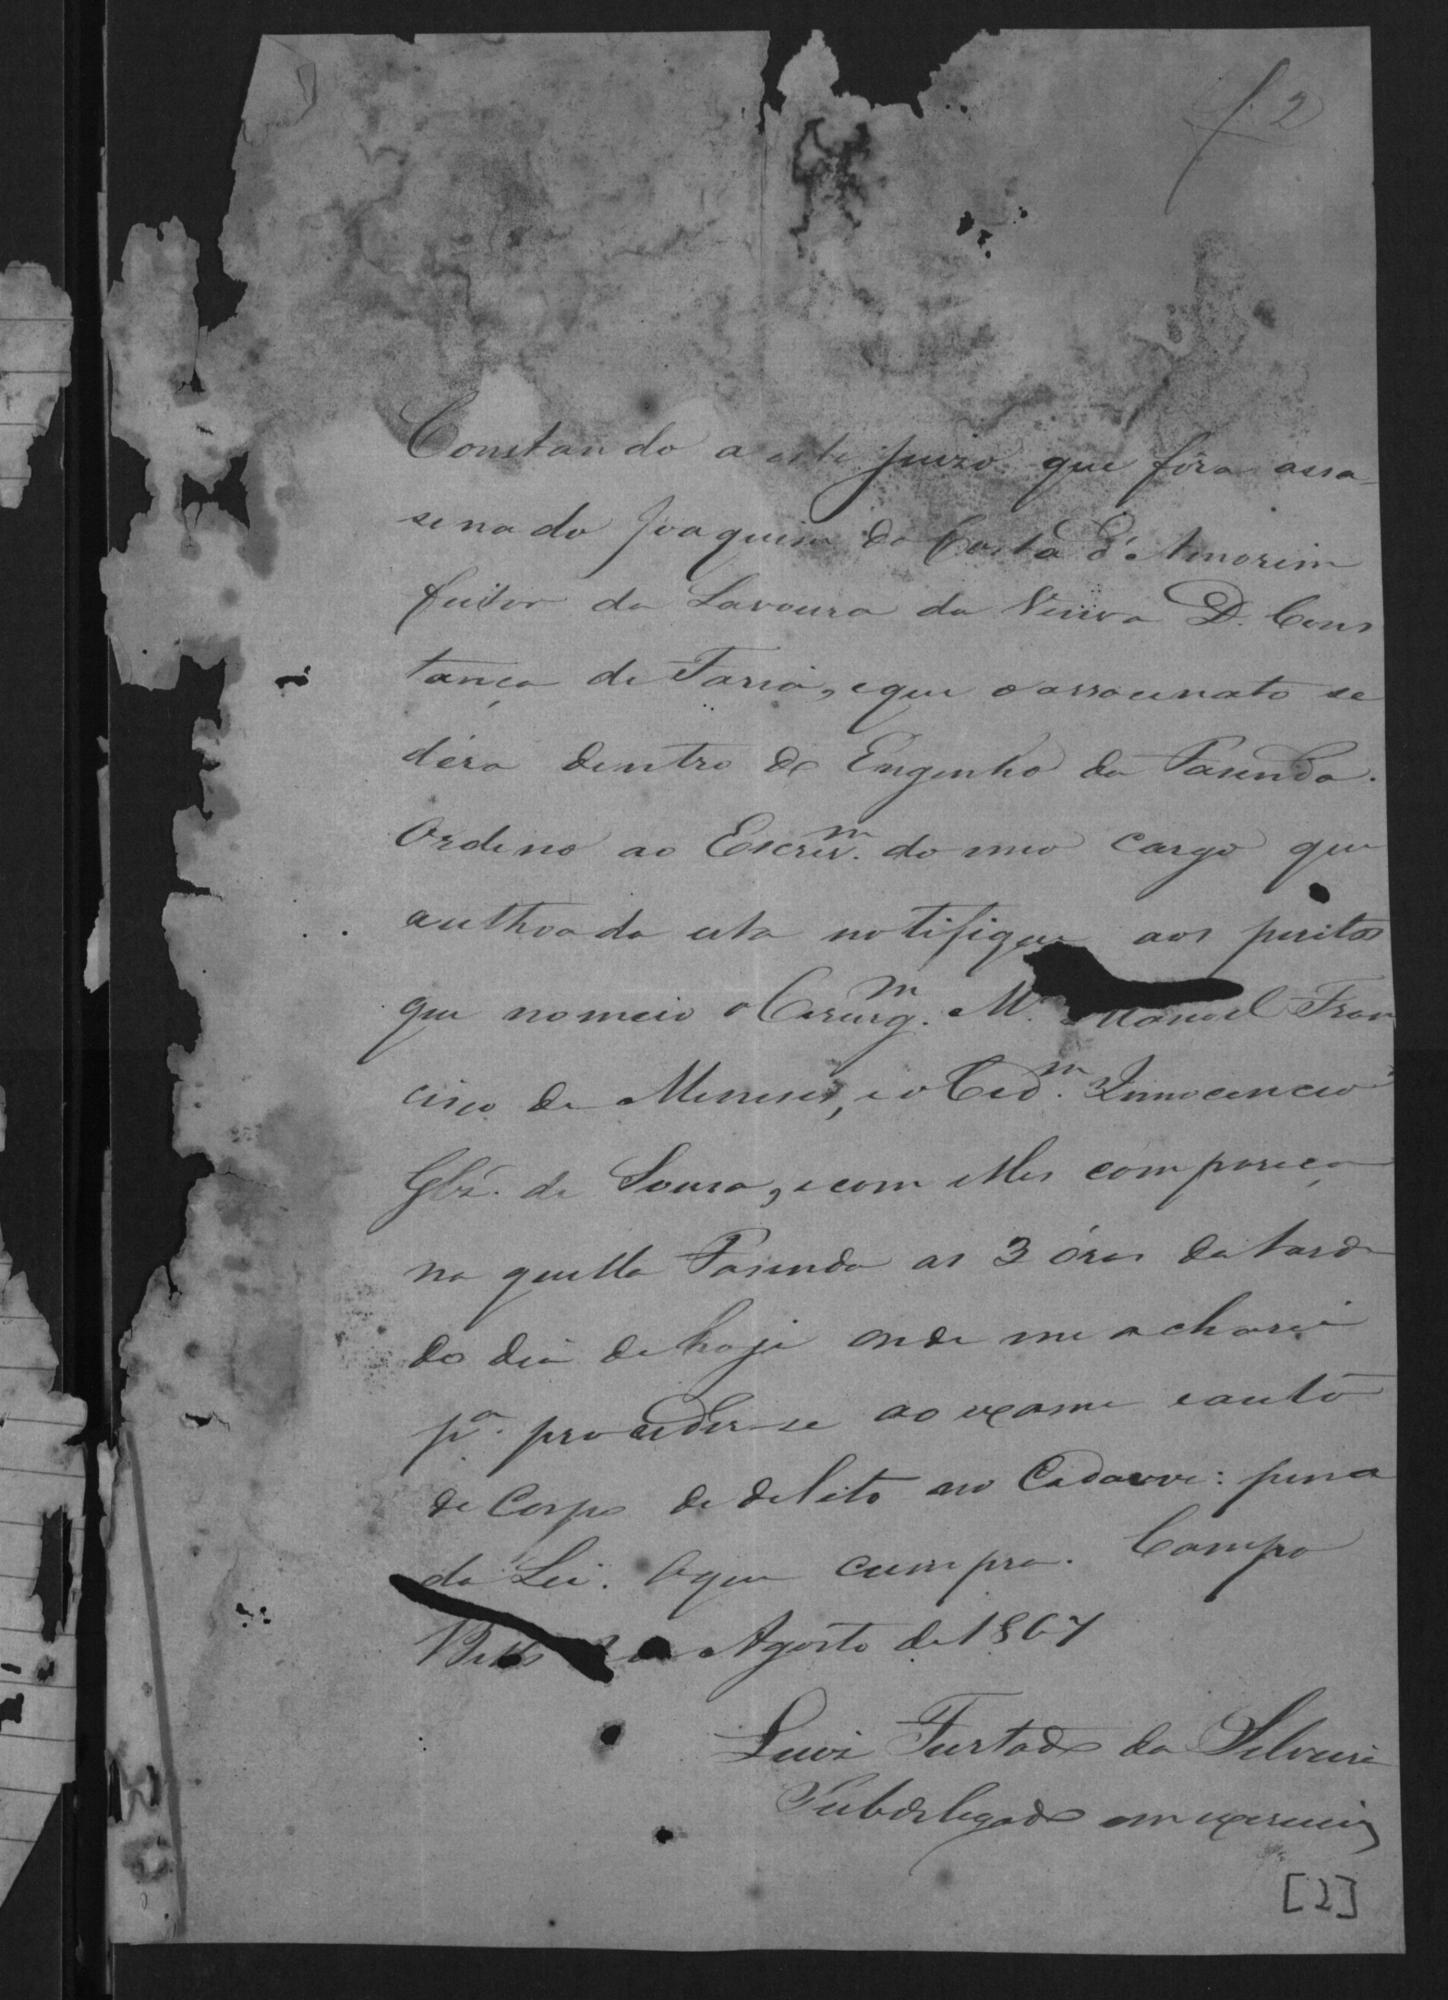 f. 2
Constando a este juizo que fôra assa-
sinado Joaquim da Costa d'Amorim
feitor da Lavoura da Viuva D. Cons
tança de Faria, e que o assacinato se
déra dentro do Engenho da Fasenda.
Ordeno ao Escrivm. do meu cargo que
authoada esta notifique aos peritos
que nomeio o Cirurgm. Mr. Manoel Fran
cisco de Meneses, e o Cidm. Innocencio
Glz. de Sousa, e com elles compareça
na quella Fasenda as 3 óras da tarde
do dia de hoje onde me acharei
pa. proceder-se ao exame e auto
de Corpo de delito no Cadavre: pena
da Lei. O que cumpra. Campo
Bello de Agosto de 1867
Luiz Furtado da Silveira
Subdelegado em exercicio
[2]